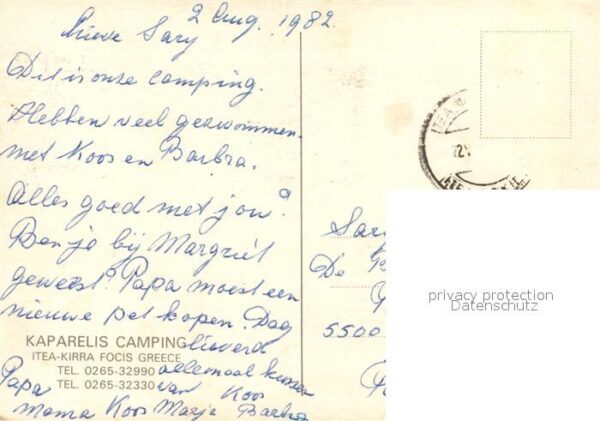 2 Aug. 1982.
Lieve Sary
Dit is onze camping.
Hebben veel gezwommen
met Koos en Barbra.
Alles goed met jou?
Ben je bij Margriet
geweest? Papa moest een
nieuwe pet kopen. Dag
lieverd
allemaal kussen
van Koos
Papa
Mama Koos Marja Barbra
KAPARELIS CAMPING
ITEA-KIRRA FOCIS GREECE
TEL. 0265-32990
TEL. 0265-32330
ITEA
Sar
De
5500
privacy protection
Datenschutz